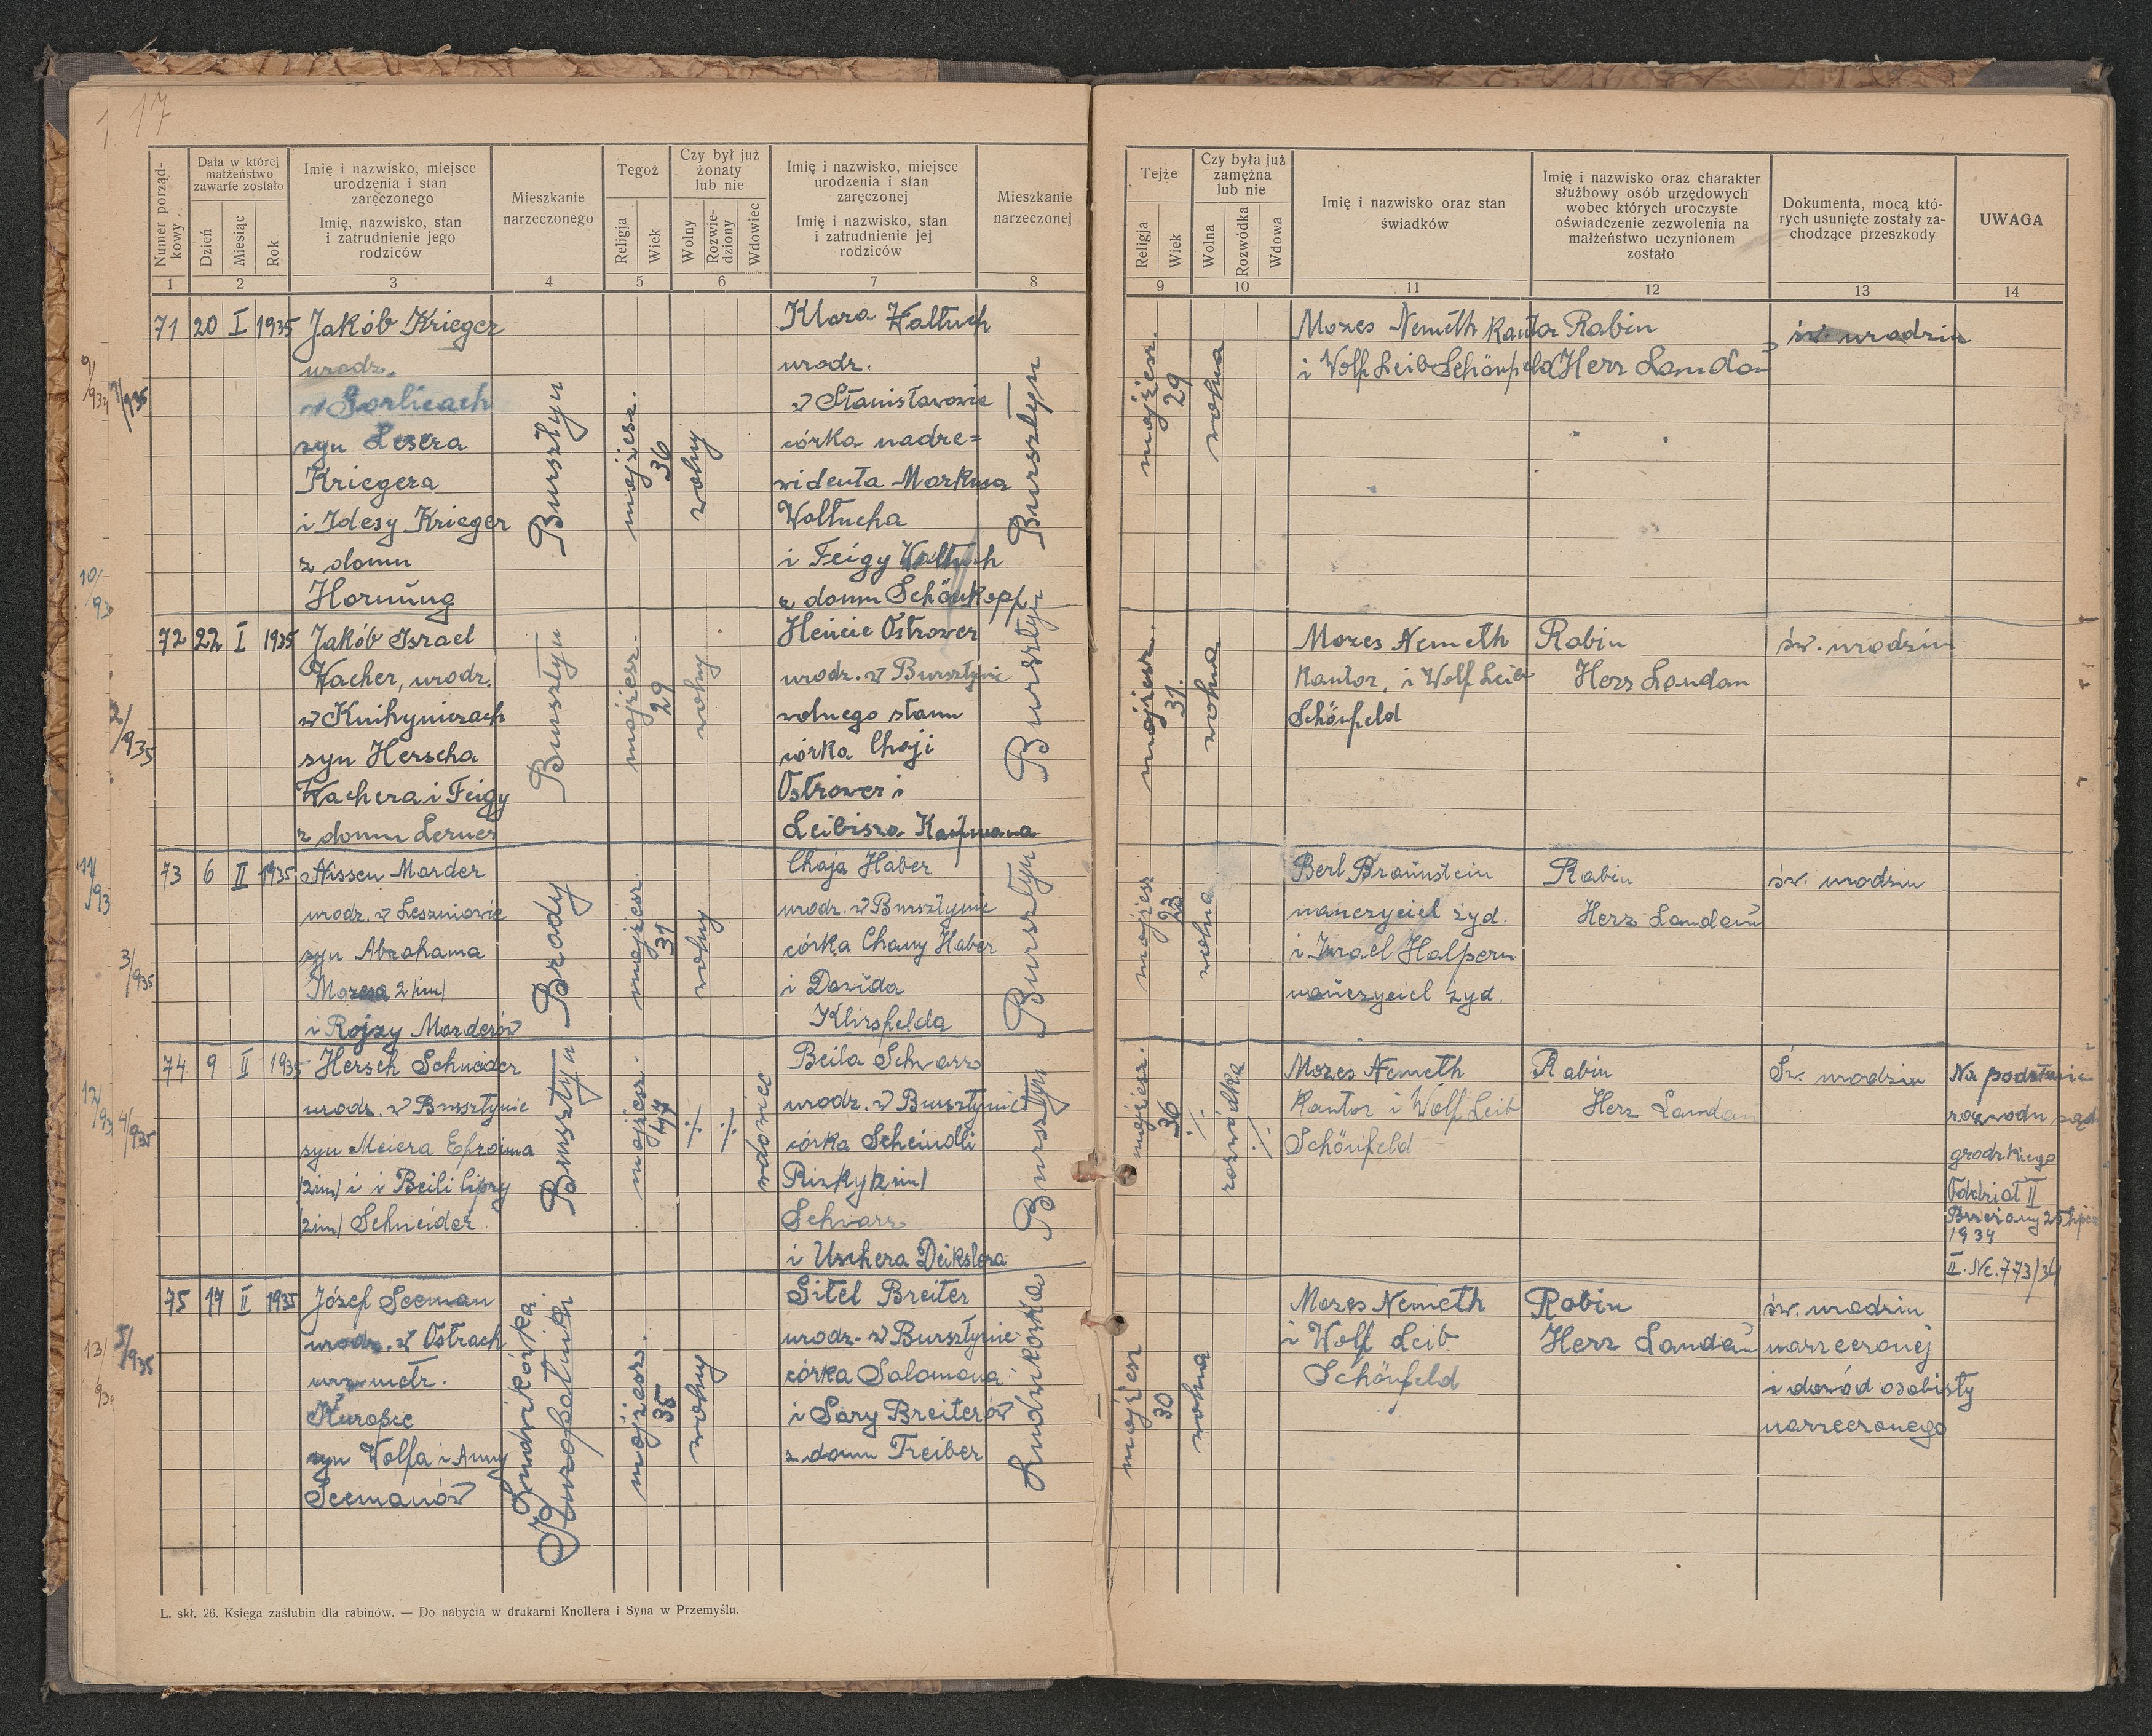 1 17
Numer porządkowy
Data w której małżeństwo zawarte zostało
Dzień
Miesiąc
Rok
Imię i nazwisko, miejsce urodzenia i stan zaręczonego
Imię, nazwisko, stan i zatrudnienie jego rodziców
Mieszkanie narzeczonego
Tegoż
Religja
Wiek
Czy był już żonaty lub nie
Wolny
Rozwiedziony
Wdowiec
Imię i nazwisko, miejsce urodzenia i stan zaręczonej
Imię i nazwisko, stan i zatrudnienie jej rodziców
Mieszkanie narzeczonej
Tejże
Religja
Wiek
Czy była już zamężna lub nie
Wolna
Rozwódka
Wdowa
Imię i nazwisko oraz stan świadków
Imię i nazwisko oraz charakter służbowy osób urzędowych wobec których uroczyste oświadczenie zezwolenia na małżeństwo uczynionem zostało
Dokumenta, mocą których usunięte zostały zachodzące przeszkody
UWAGA
1 2 3 4 5 6 7 8 9 10 11 12 13 14
71 20 I 1935
Jakób Krieger
urodz.
w Gorlicach
syn Lesera
Kriegera
i Idesy Krieger
z domu
Hornung
Bursztyn
mojżesz.
36
wolny
Klara Wałtuch
urodz.
w Stanisławowie
córka nadre=
widenta Markusa
Wałtucha
i Feigy Wałtuch
z domu Schönkopf
Bursztyn
mojżesz.
29
wolna
Mozes Nemeth Kantor
i Wolf Leib Schönfeld
Rabin
Herz Landau
św. urodzin
1/935
72 22 I 1935
Jakób Israel
Wacher, urodz.
w Knihyniczach
syn Herscha
Wachera i Feigy
z domu Lerner
Bursztyn
mojżesz.
29
wolny
Hencie Ostrower
urodz. w Bursztynie
wolnego stanu
córka Chaji
Ostrower i
Leibisza Kaufmana
Bursztyn
mojżesz.
31.
wolna
Mozes Nemeth
Kantor, i Wolf Leib
Schönfeld
Rabin
Herz Landau
św. urodzin
2/935
73 6 II 1935
Nissen Marder
urodz. w Leszniowie
syn Abrahama
Mozesa 2 im/
i Rojzy Marderów
Brody
mojżesz.
31
wolny
Chaja Haber
urodz. w Bursztynie
córka Chany Haber
i Dawida
Klirsfelda
Bursztyn
mojżesz
23
wolna
Berl Braunstein
nauczyciel żyd.
i Izrael Halpern
nauczyciel żyd.
Rabin
Herz Landau
św. urodzin
3/935
74 9 II 1935
Hersch Schneider
urodz. w Bursztynie
syn Meiera Efroima
/2im/ i i Beili Cipry
/2im/ Schneider
Bursztyn
mojżesz.
47
wdowiec
Beila Schwarz
urodz. w Bursztynie
córka Scheindli
Rizky /2 im/
Schwarz
i Uschera Deikslera
Bursztyn
mojżesz.
36
rozwódka
Mozes Nemeth
Kantor i Wolf Leib
Schönfeld
Rabin
Herz Landau
Św. urodzin
Na podstawie
rozwodu sąd
grodzkiego
Oddział II
Brzeżany 25 lipca
1934
II. Nc. 773/34
4/935
75 17 II 1935
Józef Seeman
urodz. w Ostrach
metr.
Kuropie
syn Wolfa i Anny
Seemanów
Ludwikówka
Kuropatniki
mojżesz.
35
wolny
Gitel Breiter
urodz. w Bursztynie
córka Salomona
i Sary Breiterów
z domu Treiber
Ludwikówka
mojżesz
30
wolna
Mozes Nemeth
i Wolf Leib
Schönfeld
Rabin
Herz Landau
św. urodzin
narzeczonej
i dowód osobisty
narzeczonego
5/935
L. skł. 26. Księga zaślubin dla rabinów. — Do nabycia w drukarni Knollera i Syna w Przemyślu.